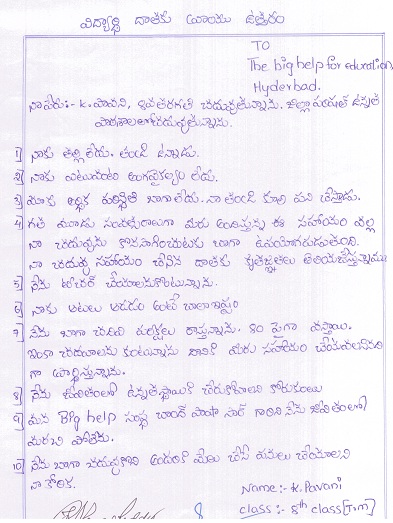 విద్యార్థి దాతకు వ్రాయు ఉత్తరం
TO
The big help for education,
Hyderbad.
నా పేరు:- k. పావని, 8వ తరగతి చదువుతున్నాను. జిల్లా పరిషత్ ఉన్నత
పాఠశాలలో చదువుతున్నాను.
1] నాకు తల్లి లేదు. తండ్రి ఉన్నాడు.
2] నాకు ఎటువంటి అంగవైకల్యం లేదు.
3] మాకు ఆర్థిక పరిస్థితి బాగా లేదు. నా తండ్రి కూలి పని చేస్తాడు.
4] గత మూడు సంవత్సరాలుగా మీరు అందిస్తున్న ఈ సహాయం వల్ల
నా చదువును కొనసాగించుటకు బాగా ఉపయోగపడుతుంది.
నా చదువుకై సహాయం చేసిన దాతకు కృతజ్ఞతలు తెలియజేస్తున్నాము
5] నేను టీచర్ చేయాలనుకొంటున్నాను.
6] నాకు ఆటలు ఆడడం అంటే చాలా ఇష్టం
7] నేను బాగా చదివి పరీక్షలు రాస్తున్నాను. 80 పైగా వస్తాయి.
ఇంకా చదవాలనుకుంటున్నాను దానికి మీరు సహాయం చేయవలసినది
గా ప్రార్థిస్తున్నాను.
8] నేను జీవితంలో ఉన్నత స్థాయికి చేరుకోవాలని కోరుకుంటు
9] మన Big help సంస్థ చాంద్ పాషా సార్ గారిని నేను జీవితంలో
మరచి పోలేను.
10] నేను బాగా చదువుకొని అందరికి మేలు చేసే పనులు చేయాలని
నా కోరిక.
Name:- k. Pavani
class:- 8th class [T.m]